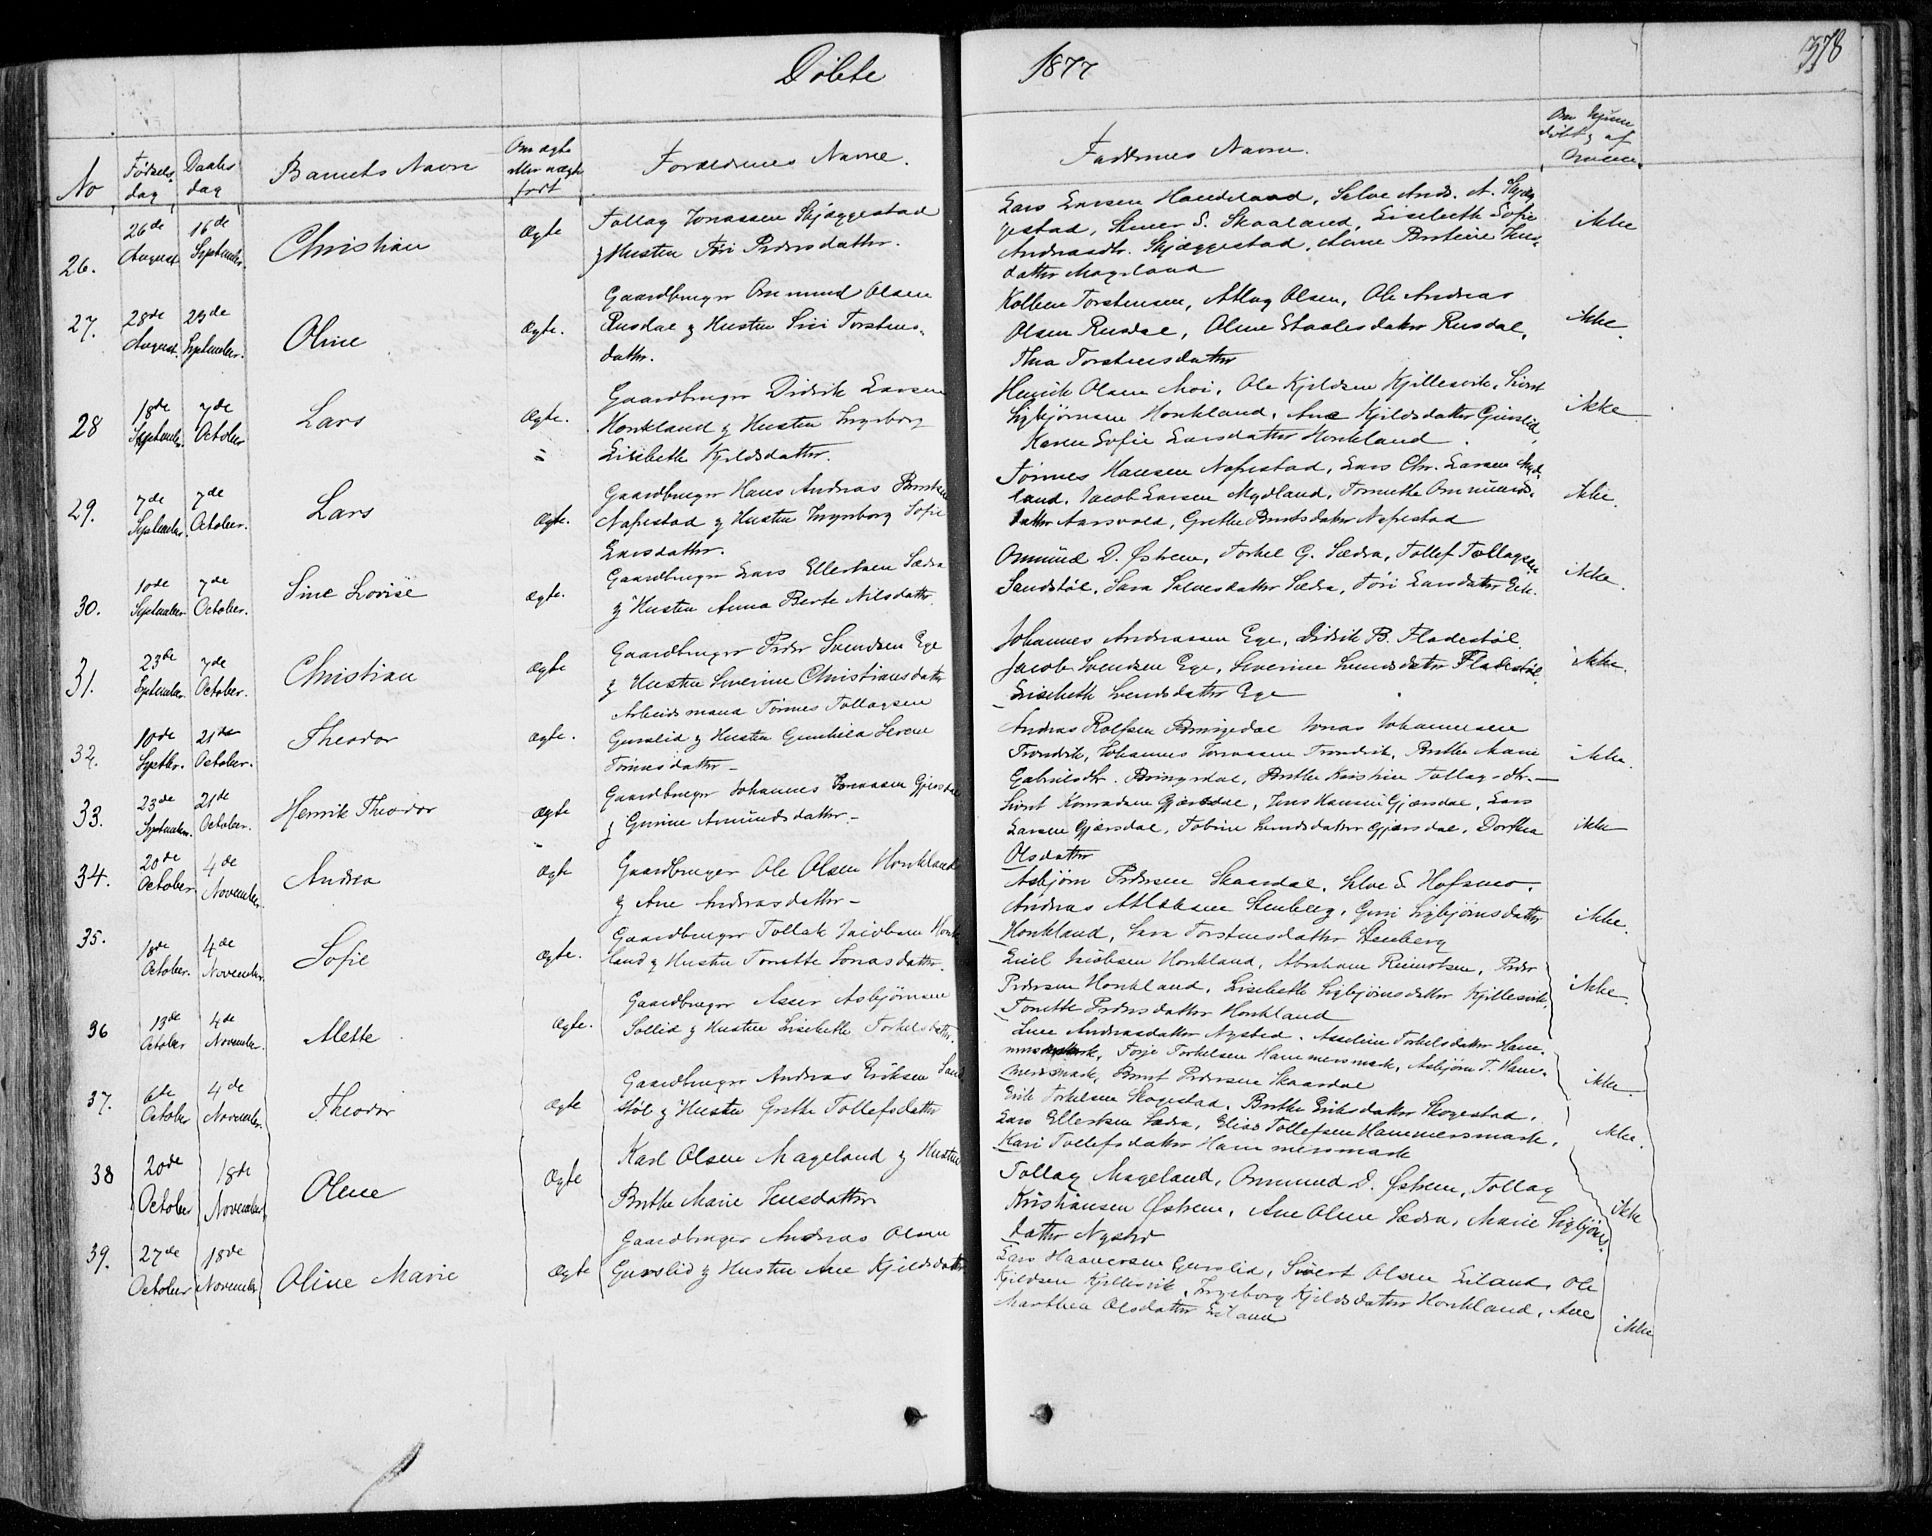 Døbte 1877 378
No Fødsels dag Daabs dag Barnets Navn Om ægte eller uægte født Forældrenes Navne. Faddernes Navne. Om hjemmedøbt & af
26. 26de August 16de September Christian Ægte Tollag Jonassen Skjæggestad
& Hustru Tøri Pedersdatter.
Lars Larsen Haudeland, Salve Ands. A. Skjæg
gestad, Stener S. Skaaland, Lisebeth Sofie
Andreasdtr. Skjæggestad, Anne Jens
datter Mageland
ikke
27. 28de August. 23de September. Oline Ægte. Gaardbruger Ommund Olsen
Rusdal & Hustru Siri Torstens-
datter.
Kolben Torstensen, Atlag Olsen, Ole Andreas
Olsen Rusdal, Oline Staalesdatter Rusdal,
Thea Torstensdatter
ikke.
28 18de September 7de October Lars Ægte. Gaardbruger Didrik Larsen
Honkland & Hustru Ingeborg
Lisebeth Kjeldsdatter.
Henrik Olsen Moi, Ole Kjeldsen Kjillesvik, Sivert
Sigbjørnsen Honkland, Ane Kjeldsdatter Gurslid,
Karen Sofie Larsdatter Honkland.
ikke
29. 7de September 7de October. Lars Ægte. Gaardbruger Hans Andreas Berntsen
Napestad & Hustru Ingeborg Sofie
Larsdatter.
Tønnes Hansen Napestad, Lars Chr. Larsen Myd
land, Jacob Larsen Mydland, Tomette Ommunds-
datter Aarsvold, Grethe Berntsdatter Napestad
ikke.
30. 10de September 7de October. Sine Lovise Ægte. Gaardbruger Lars Ellertsen Sædra
& Hustru Anna Berte Nilsdatter.
Ommund D. Østrem, Torkel G. Sædra, Tollef Tollagsen
Sandstøl, Sara Salvesdatter Sædra, Tøri Larsdatter Eik.
ikke.
31. 23de September 7de October. Christian Ægte Gaardbruger Peder Svendsen Ege
& Hustru Severine Christiansdatter
Johannes Andreassen Ege, Didrik B. Fladestøl
Jacob Svendsen Ege, Severine Svendsdatter Fladestøl
Lisebeth Svendsdatter Ege
ikke.
32. 10de Septbr. 21de October. Theodor Ægte. Arbeidsmand Tønnes Tollagsen
Gurslid & Hustru Gunhild Serene
Tønnesdatter -
Andreas Rolfsen Bringedal Jonas Johannesen
Trondvik, Johannes Jonassen Trondvik, Berthe Marie
Gabrielsdtr. Bringedal, Berthe Kristine Tollagsdtr. -
ikke.
33. 23de September. 21de October. Henrik Theodor Ægte Gaardbruger Johannes Jonassen Gjersdal
& Gurine Amundsdatter -
Sivert Konradsen Gjersdal, Jens Hansen Gjersdal, Lars
Larsen Gjersdal, Tobine Svendsdatter Gjersdal, Dorthea
Olsdatter
ikke
34. 20de October 4de November. Andrea Ægte Gaardbruger Ole Olsen Honkland
& Ane Andreasdatter -
Asbjørn Pedersen Skaardal, Salve S. Hofsmo,
Andreas Atlaksen Stenberg, Guri Sigbjørnsdatter
Honkland, Sara Torstensdatter Stenberg
ikke.
35. 18de October. 4de November. Sofie Ægte. Gaardbruger Tollak Jacobsen Honk
land & Hustru Tonette Jonasdatter.
Emil Jacobsen Honkland, Abraham Reinertsen, Peder
Pedersen Honkland, Lisebeth Sigbjørnsdatter Kjillesvik,
Tonette Pedersdatter Honkland
ikke.
36 13de October 4de November. Alette Ægte. Gaardbruger Asser Asbjørnsen
Sollid & Hustru Lisebeth Torkelsdatter.
Line Andreasdatter Nysted, Asseline Torkelsdatter Ham-
mersmark, Terje Torkelsen Hammersmark, Asbjørn T. Ham-
mersmark, Bernt Pedersen Skaardal
ikke
37. 6te October 4de November. Theodor Ægte Gaardbruger Andreas Eriksen Sand
støl & Hustru Grethe Tollefsdatter
Erik Torkelsen Skogestad, Berthe Eriksdatter Skogestad,
Lars Ellertsen Sædra, Elias Tollefsen Hammersmark,
Kari Tollefsdatter Hammersmark
ikke.
38 20de October 18de November Olene Ægte Karl Olsen Mageland & Hustru
Berthe Marie Jensdatter
Tollag Mageland, Ommund D. Østrem, Tollag
Kristiansen Østrem, Ane Oline Sædra, Marie Sigbjørns-
datter Nysted
ikke
39. 27de October 18de November Oline Marie Ægte Gaardbruger Andreas Olsen
Gurslid & Hustru Ane Kjeldsdatter
Lars Haaversen Gurslid, Sivert Olsen Eiland, Ole
Kjeldsen Kjillesvik, Ingeborg Kjeldsdatter Honkland, Ane
Marthea Olsdatter Eiland
ikke